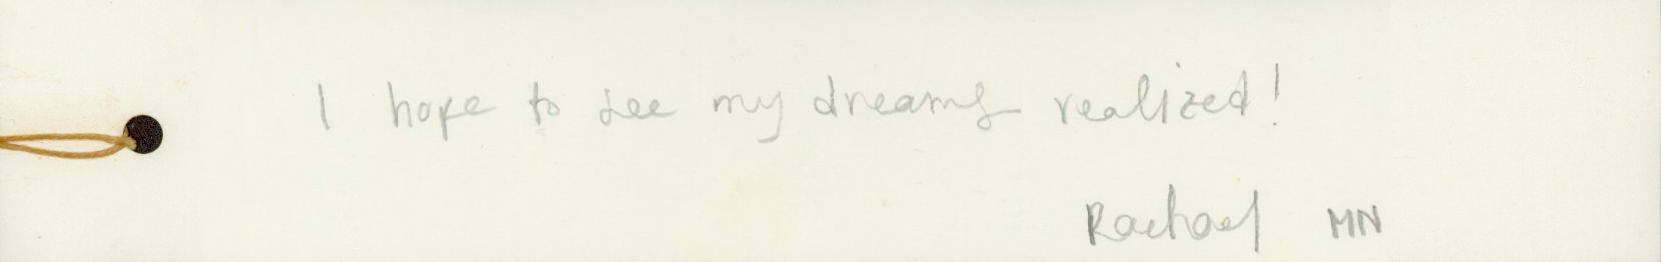 I hope to see my dreams realized!
Rachael MN